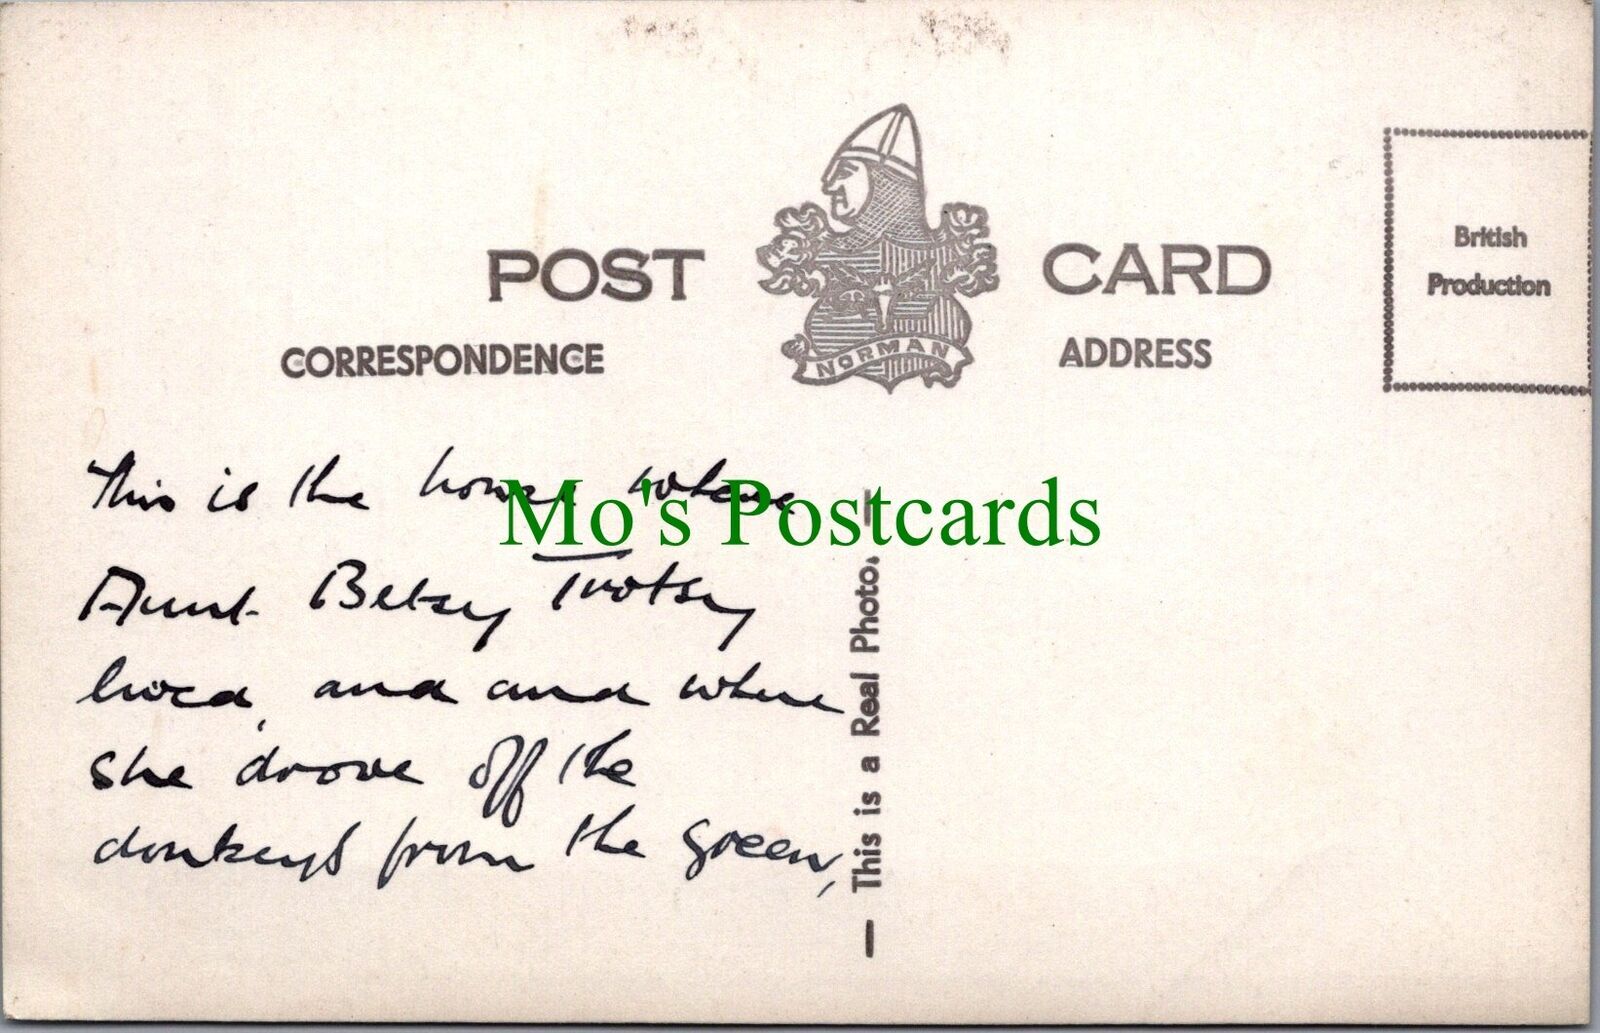 POST CARD
British
Production
CORRESPONDENCE
NORMAN
ADDRESS
This is the house where
Mo's Postcards
Aunt Betsy Trotsy
lived, and and where
she drove off the
donkeys from the green,
— This is a Real Photo. —